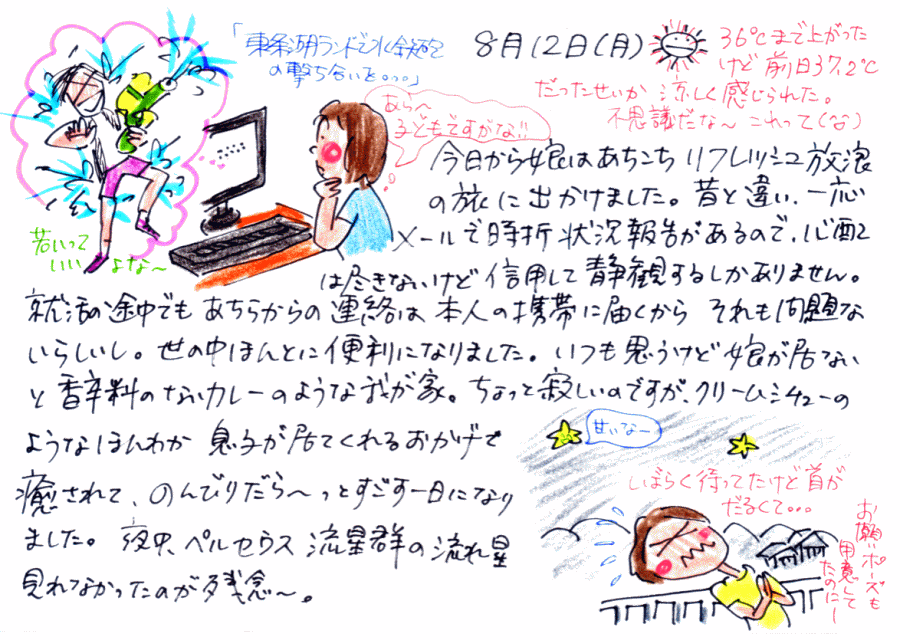 「東条湖ランドで水鉄砲
の撃ち合いを…」
8月12日(月)
36℃まで上がった
けど前日37.2℃
だったせいか 涼しく感じられた。
不思議だな〜 これって(笑)
あら〜
子どもですがな!!
若いって
いいよな〜
今日から娘はあちこちリフレッシュ放浪
の旅に出かけました。昔と違い、一応
メールで時折状況報告があるので、心配
は尽きないけど信用して静観するしかありません。
就活の途中でもあちらからの連絡は本人の携帯に届くから それも問題な
いらしいし。世の中ほんとに便利になりました。いつも思うけど娘が居ない
と香辛料のないカレーのような我が家。ちょっと寂しいのですが、クリームシチューの
ようなほんわか息子が居てくれるおかげで
癒されて、のんびりだら〜っとすごす一日になり
ました。夜中、ペルセウス流星群の流れ星
見れなかったのが残念〜。
せいなー
しばらく待ってたけど首が
だるくて…
お願いポーズも
用意して
たのにー